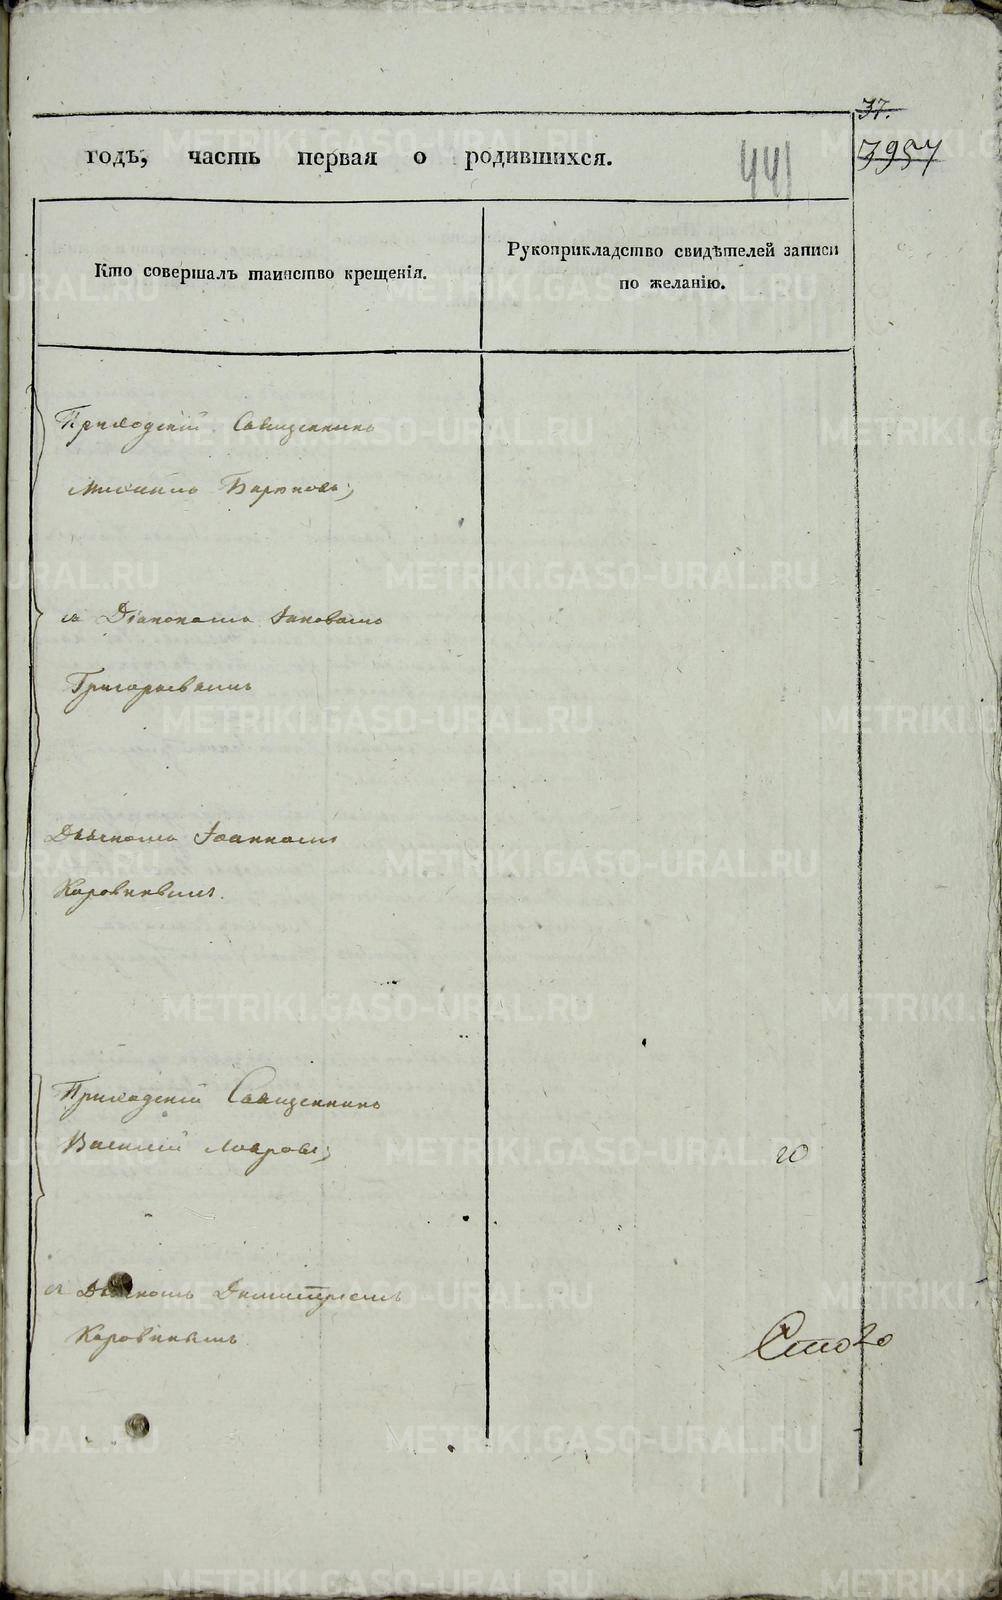 37.
годѣ, часть первая о родившихся.
441
3957
Кто совершалъ таинство крещенія.
Рукоприкладство свидѣтелей записи
по желанію.
Приходскій Священникъ
Михаилъ Бирюковъ;
съ Діакономъ Іаковомъ
Григорьевымъ
Дьячкомъ Іоанномъ
Коровинымъ.
Приходскій Священникъ
Василій
20
съ Дьячкомъ Димитріемъ
Коровинымъ
METRIKI.GASO-URAL.RU